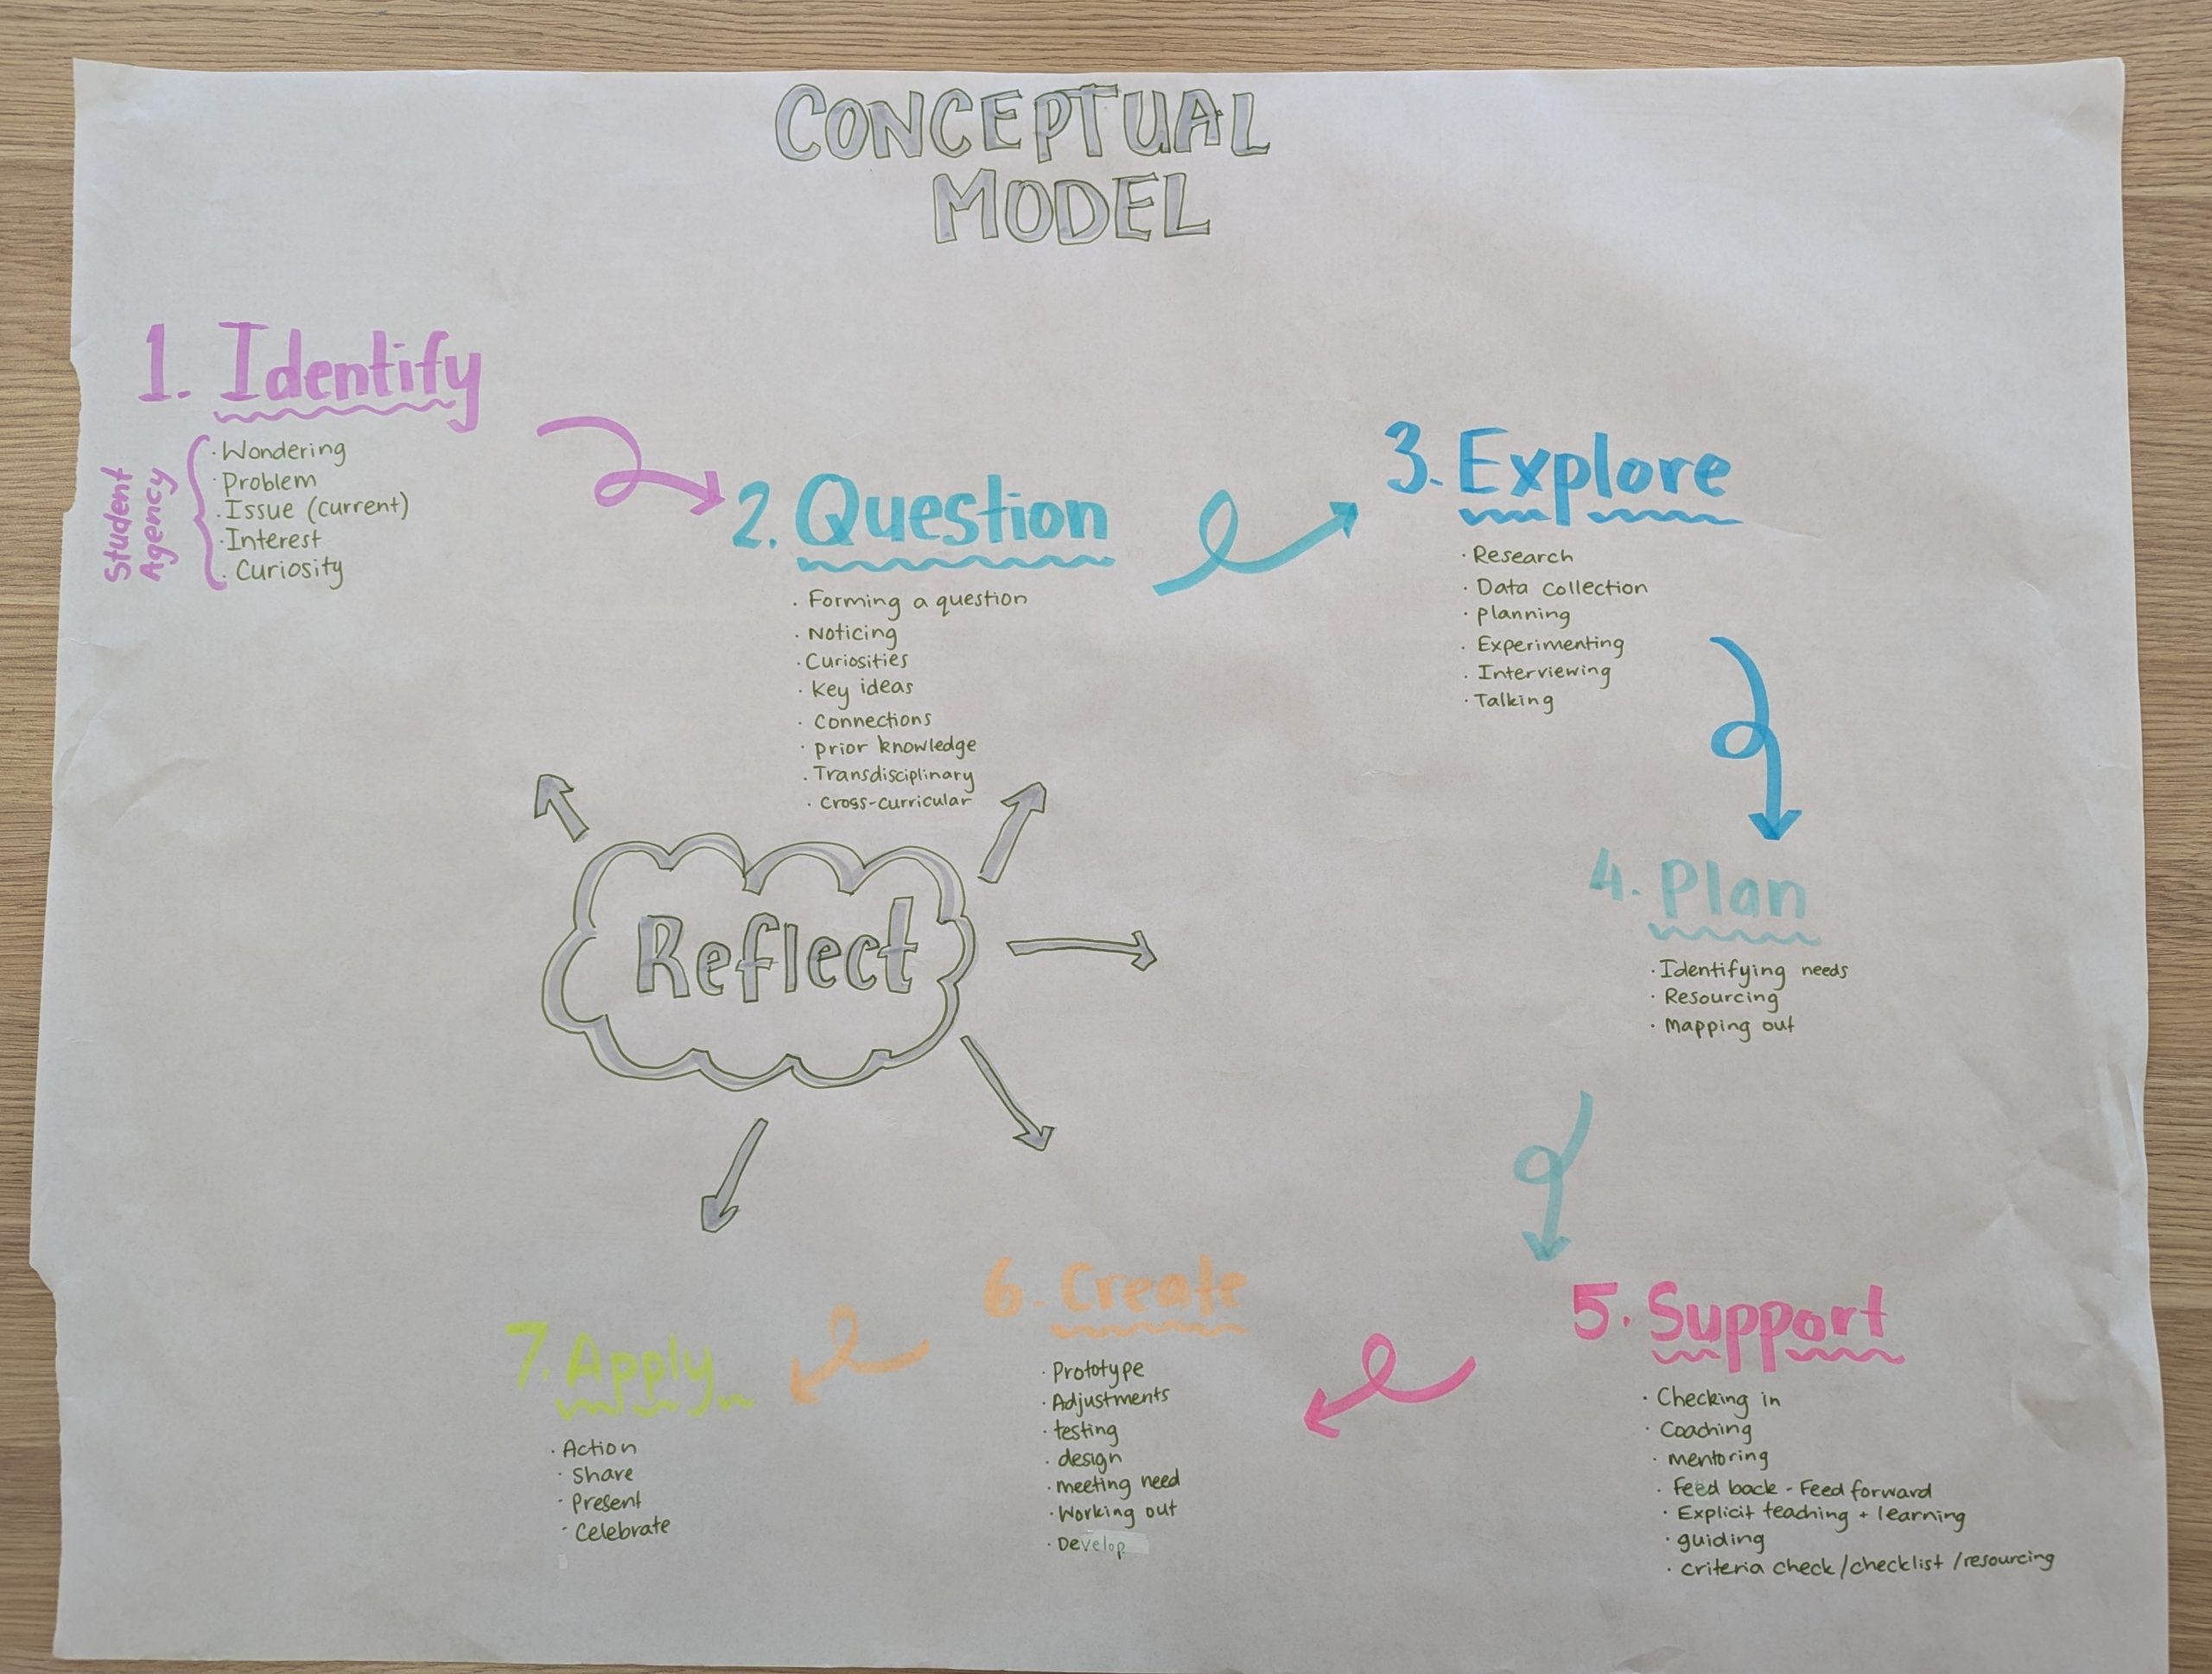 CONCEPTUAL
MODEL
1. Identify
Student
Agency
· Wondering
· Problem
· Issue (current)
· Interest
· Curiosity
2. Question
· Forming a question
· Noticing
· Curiosities
· key ideas
· Connections
· prior knowledge
· Transdisciplinary
· cross-curricular
3. Explore
· Research
· Data collection
· planning
· Experimenting
· Interviewing
· Talking
4. Plan
· Identifying needs
· Resourcing
· Mapping out
Reflect
5. Support
· Checking in
· Coaching
· mentoring
· Feed back - Feed forward
· Explicit teaching + learning
· guiding
· criteria check/checklist/resourcing
6. Create
· Prototype
· Adjustments
· testing
· design
· meeting need
· Working out
· Develop
7. Apply
· Action
· Share
· Present
· Celebrate